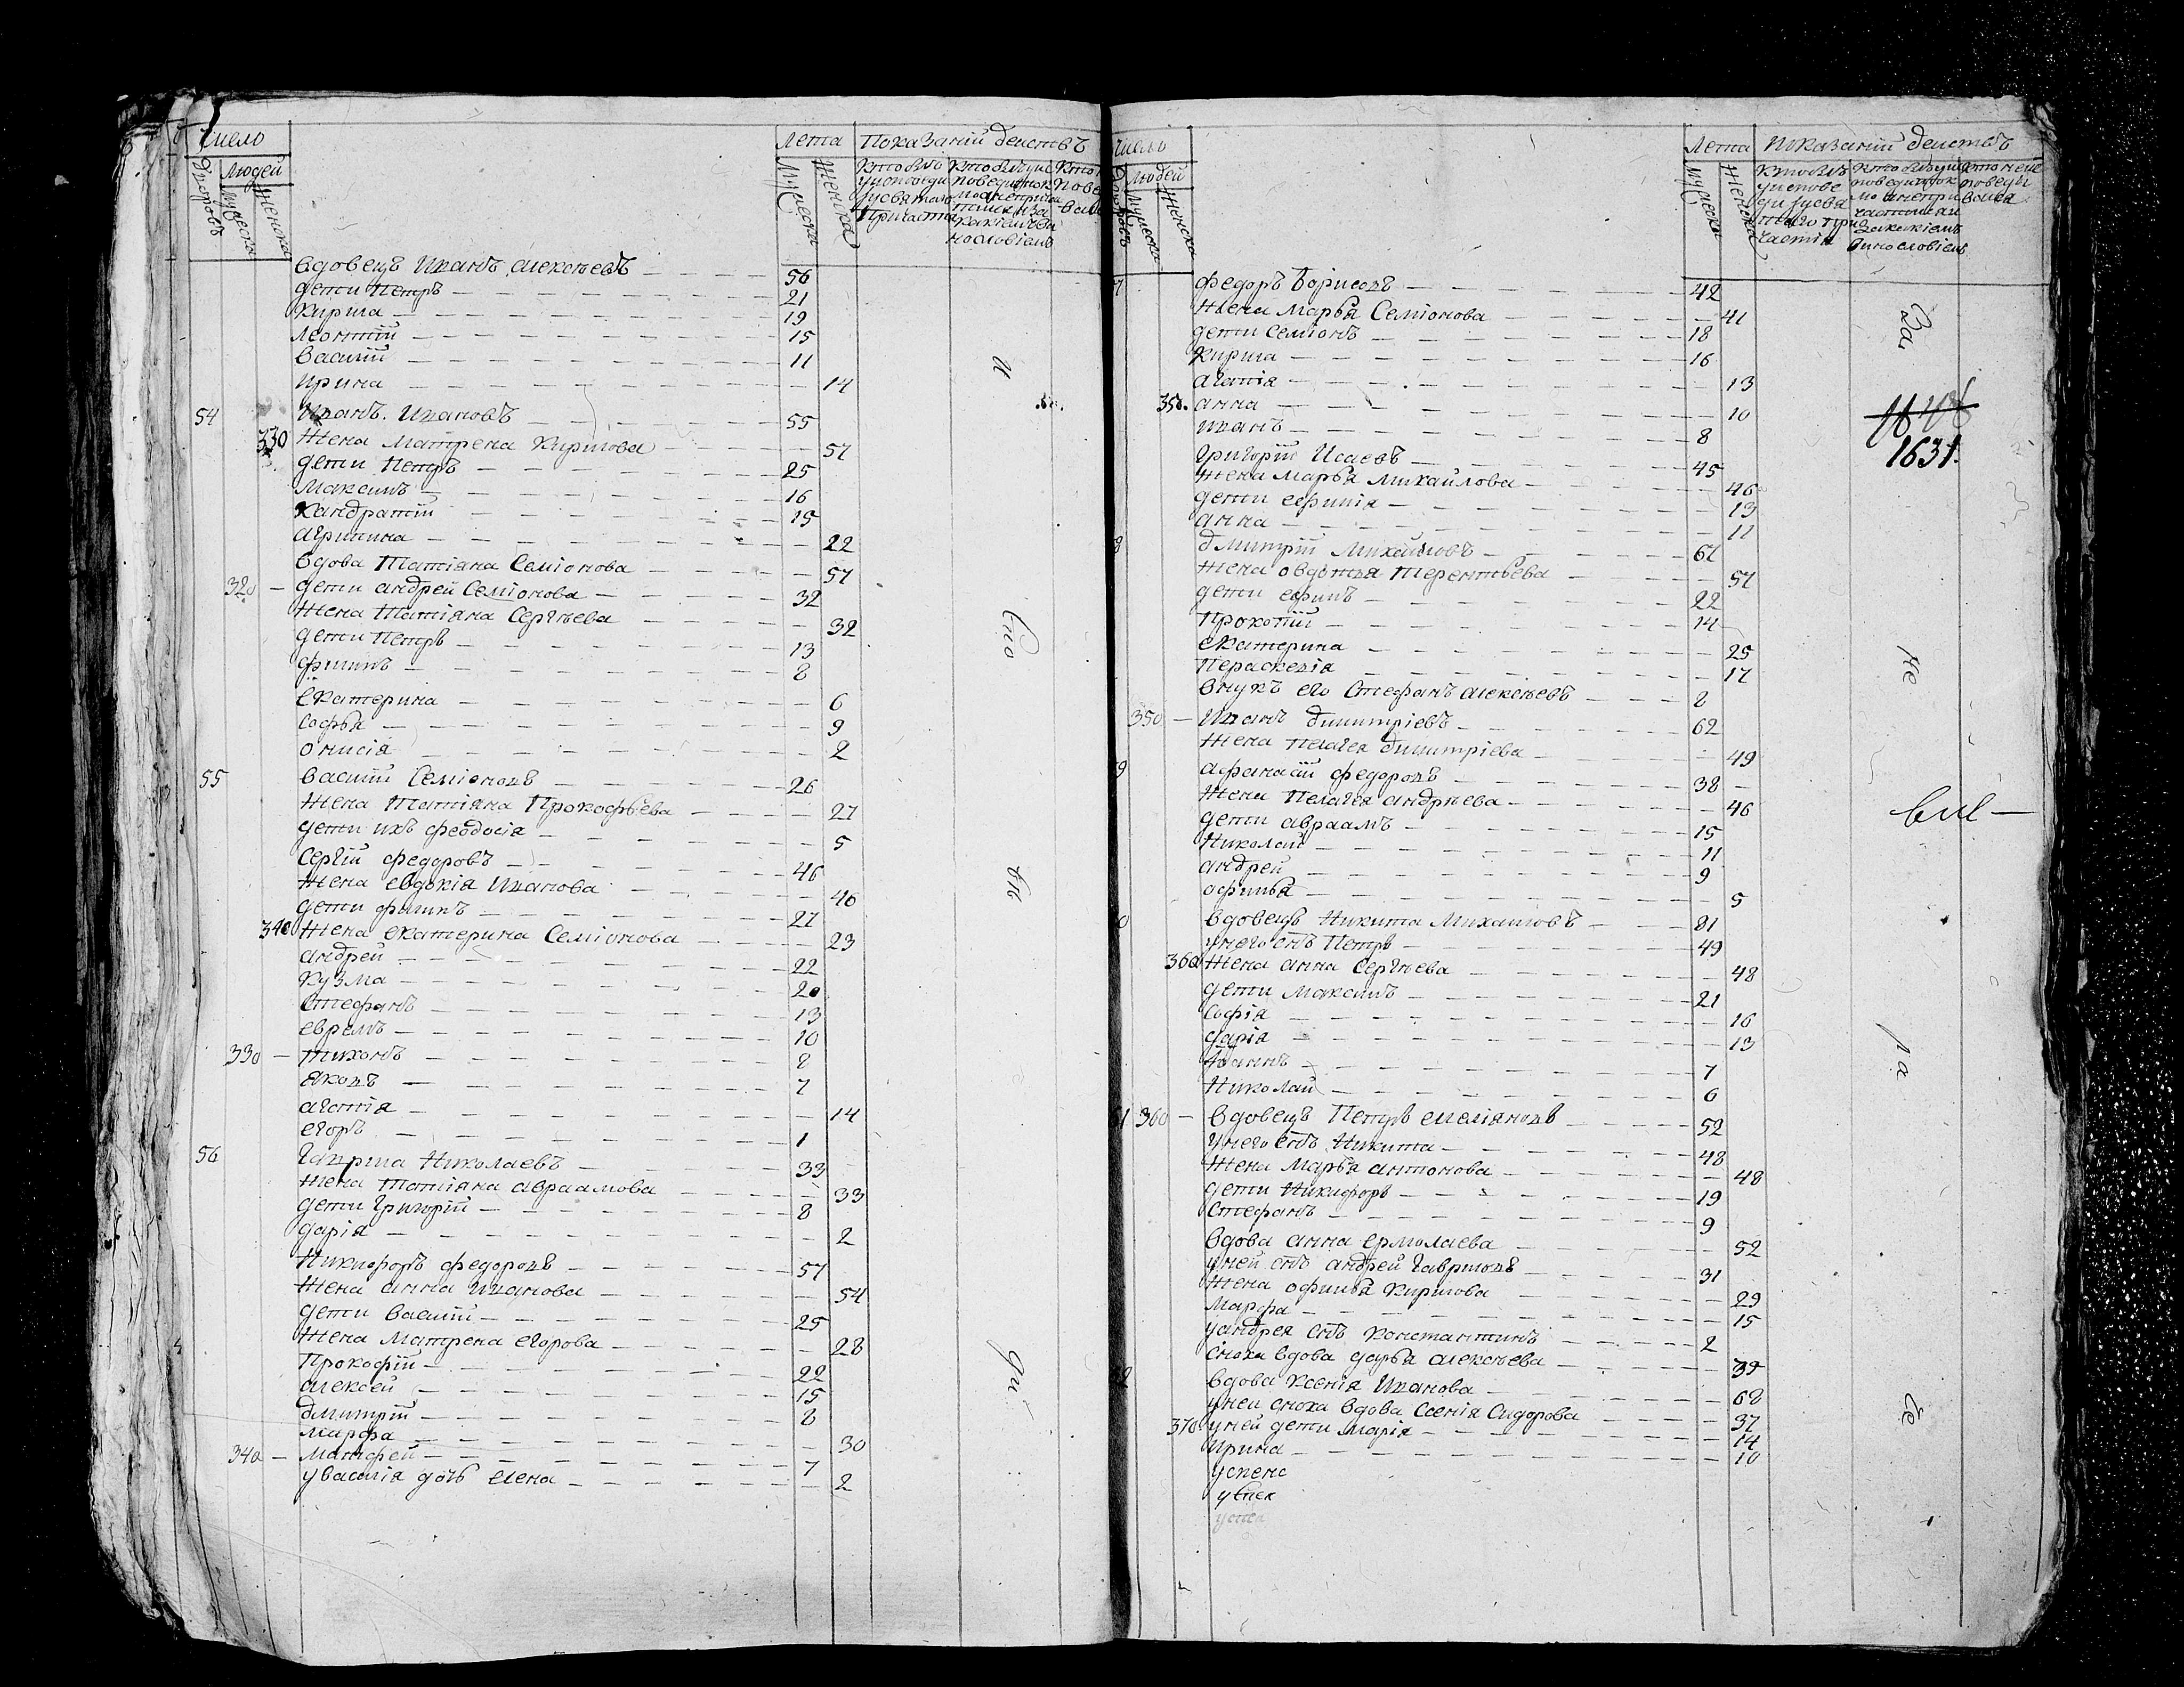 Число
Лета Показаний деиствъ
Дворовъ Людей Мужеска Женска
Мужеска Женска
вдовецъ Иванъ алексѣевъ 56
дети Петръ 21
Кирила 19
леонтий 15
василий 11
ирина 14
54 Иванъ Ивановъ 55
330 жена матрена Кирилова 57
дети Петръ 25
Максимъ 16
Кандратий 15
агрипина 22
вдова Татияна Семионова 57
320 дети андрей Семионова 32
жена Татияна Сергѣева 32
дети Петръ 13
филипъ 8
екатерина 6
софья 9
онисiя 2
55 василий Семионовъ 26
жена Татияна Прокофьева 27
дети ихъ феодосiя 5
Сергiй федоровъ 46
жена евдокiя Иванова 46
дети филипъ 27
340 жена екатерина Семионова 23
андрей 22
Кузма 20
Стефанъ 13
евремъ 10
330 тихонъ 8
яковъ 7
агапiя 14
егоръ 1
56 Гаврила Николаевъ 33
жена татияна авраамова 33
дети Григорiй 8
дарiя 2
Никифоръ федоровъ 57
жена анна Иванова 54
дети василiй 25
жена матрена егорова 28
Прокофiй 22
алексей 15
дмитрiй 8
марфа 30
340 Матфей 7
у василiя дочь елена 2
и
спо
вѣ
ди
Число
Лета Показаний деиствъ
Людей Мужеска Женска
Мужеска Женска
7 федоръ Борисовъ 42
жена Марья Семионова 41
дети Семионъ 18
Кирила 16
агапiя 13
350. анна 10
иванъ 8
григорiй Исаевъ 45
жена марья михаилова 46
дети ефимiя 13
анна 11
8 дмитрiй Михайловъ 67
жена овдотья Терентьева 57
дети ефимъ 22
Прокопiй 14
екатерина 25
Параскевiя 17
внукъ его Стефанъ алексѣевъ 8
350 Иванъ димитрiевъ 62
жена Пелагея димитрiева 49
9 афанасiй федоровъ 38
жена Пелагея андрѣева 46
дети авраамъ 15
Николай 11
андрей 9
офимья 5
0 вдовецъ Никита Михаиловъ 81
у него снъ Петръ 49
360 жена анна Сергѣева 48
дети максимъ 21
Софiя 16
дарiя 13
Иоаннъ 7
Николай 6
1 360 вдовецъ Петръ емелiяновъ 52
у него снъ Никита 48
жена Марья антонова 48
дети Никифоръ 19
Стефанъ 9
вдова анна ермолаева 52
у ней снъ андрей Гавриловъ 31
жена офимья Кирилова 29
Марфа 15
у андрея снъ константинъ 2
сноха вдова дарья алексѣева 39
2 вдова Ксенiя Иванова 68
у ней сноха вдова Ксенiя Сидорова 37
370 у ней дети Марiя 14
ирина 10
За
1631.
не
вме
ра